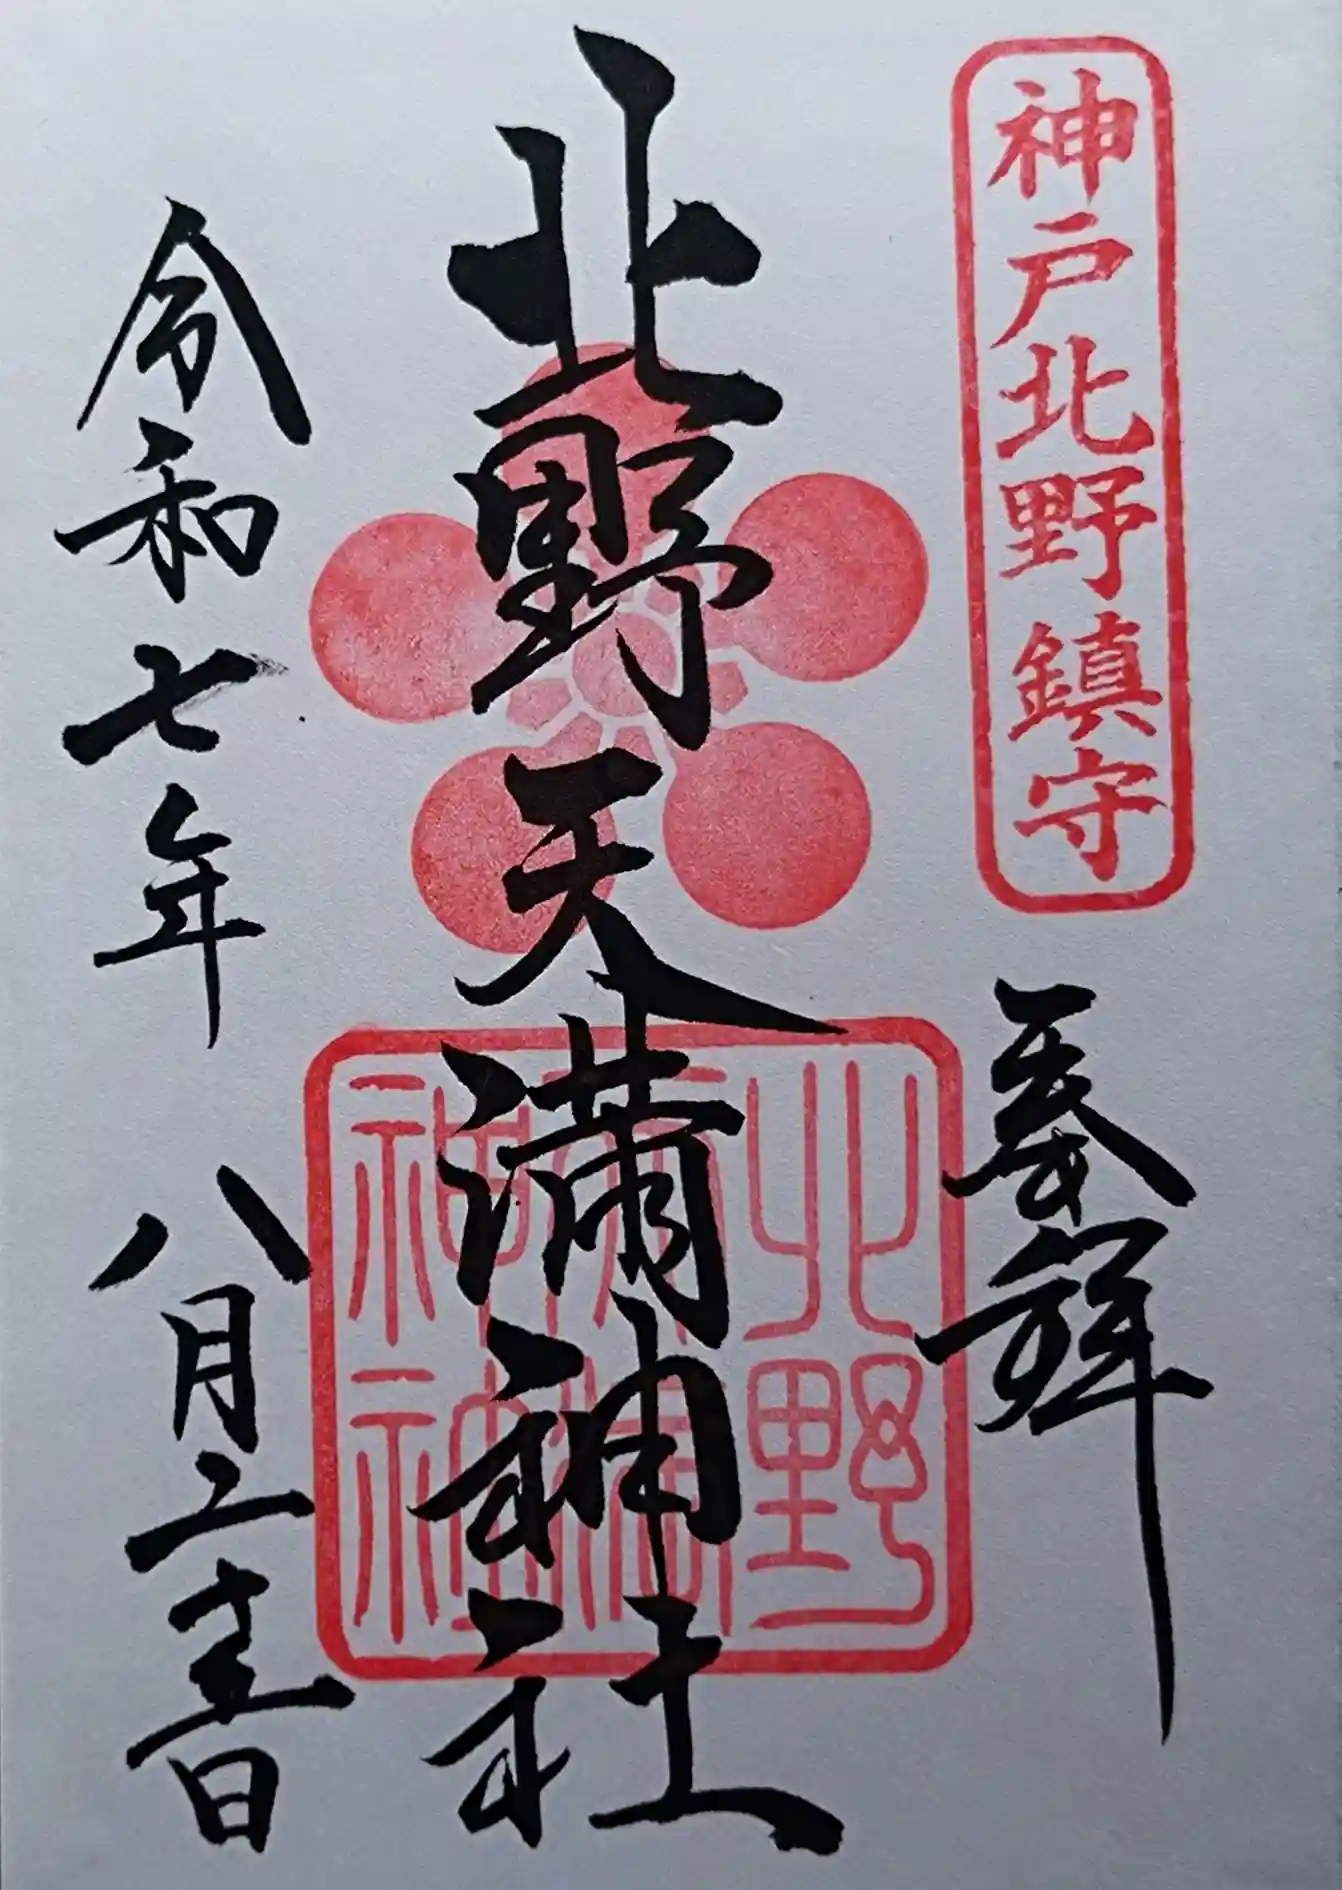 神戸北野鎮守
奉拝
北野天満神社
北野
天満
神社
令和七年八月二十五日